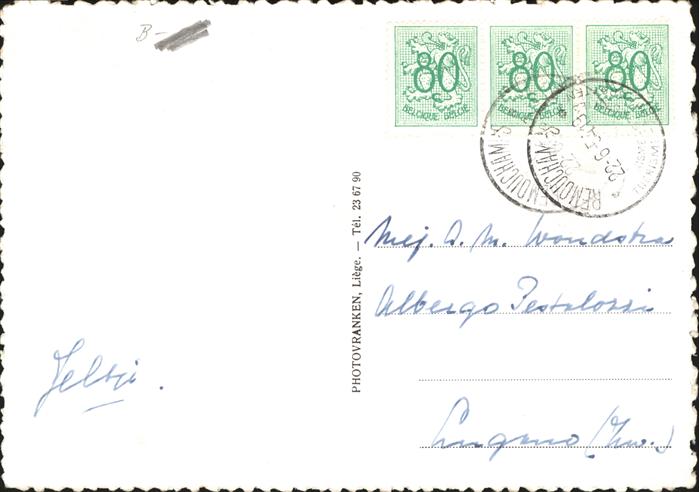 B-
80 c
BELGIQUE-BELGIË
80 c
BELGIQUE-BELGIË
80 c
BELGIQUE-BELGIË
REMOUCHAMPS
22-6-5
TOURISME
PHOTOVRANKEN, Liège. — Tél. 23 67 90
Mej. A. M. Woudstra
Albergo Pestalozzi
Lugano (Zw.)
Jeltje.